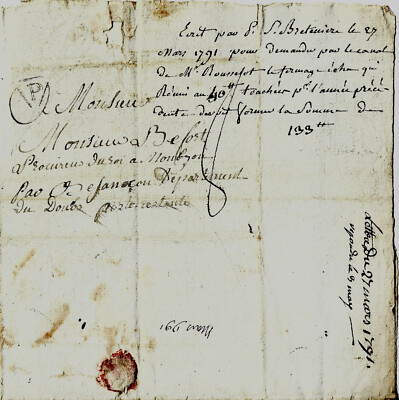 Ecrit par P. S. Bretenière le 27
Mars 1791 pour demander par le canal
de Mr. Rousselot le fermage échu qui
Réuni au 40tt touchées pr. l'année précé
dente forme la Somme de
133tt
P
A Monsieur
Monsieur Belfort
Procureur du roi a
Par Besançon Département
du Doubs poste restante
Lettre du 27 mars 1791.
repondu le 9 may
Mars 1791